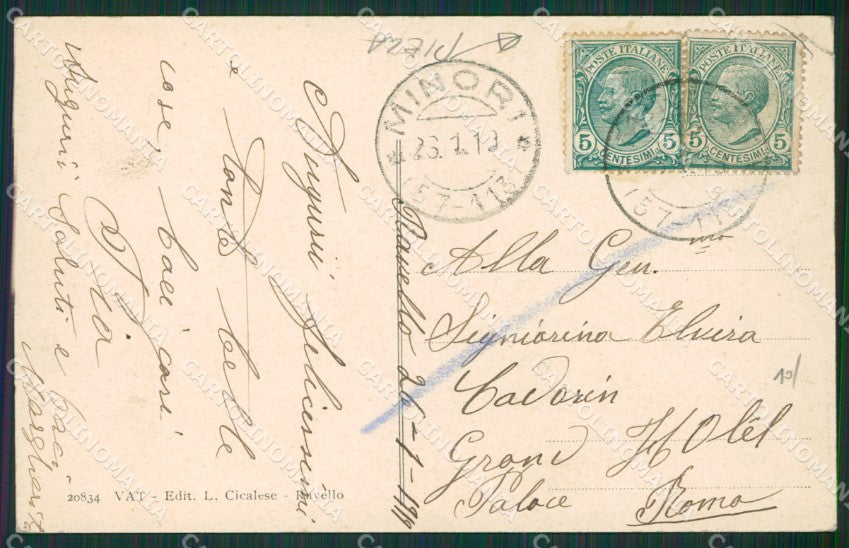 Auguri felicissimi
e tante belle
cose, baci cari
Pia
Auguri Saluti e baci
Margherita
Ravello 26-1-1919
Alla Gen.ma
Signiorina Elvira
Cadorin
Grand Hotêl
Palace Roma
MINORI
26.1.19
(57-113)
POSTE ITALIANE
5 CENTESIMI 5
POSTE ITALIANE
5 CENTESIMI 5
(57-113)
PIEGA
10/
20834 VAT - Edit. L. Cicalese - Ravello
CARTOLINOMANIA